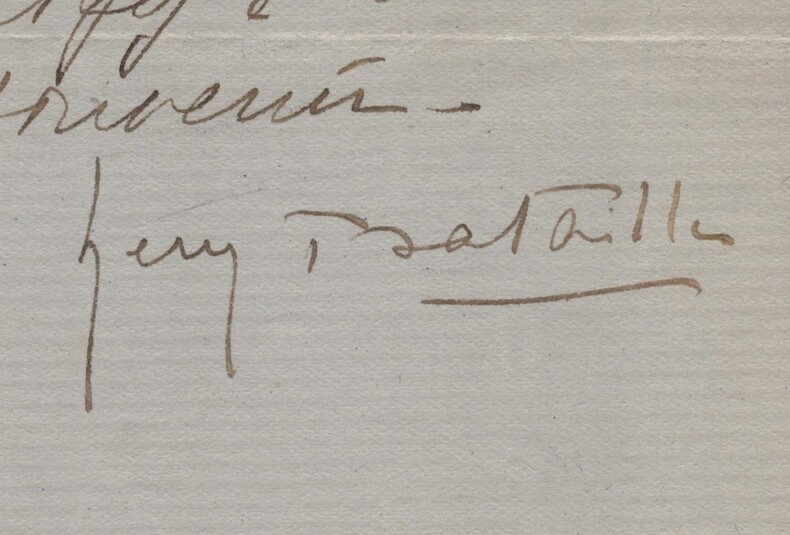 souvenir -
henry Bataille